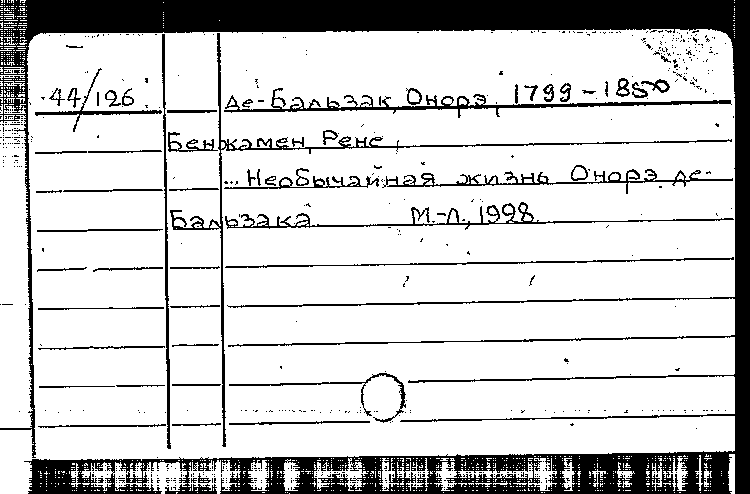 44/126 де-Бальзак, Онорэ, 1799-1850
Бенжамен, Рене,
... Необычайная жизнь Онорэ де-
Бальзака М.-Л., 1928.